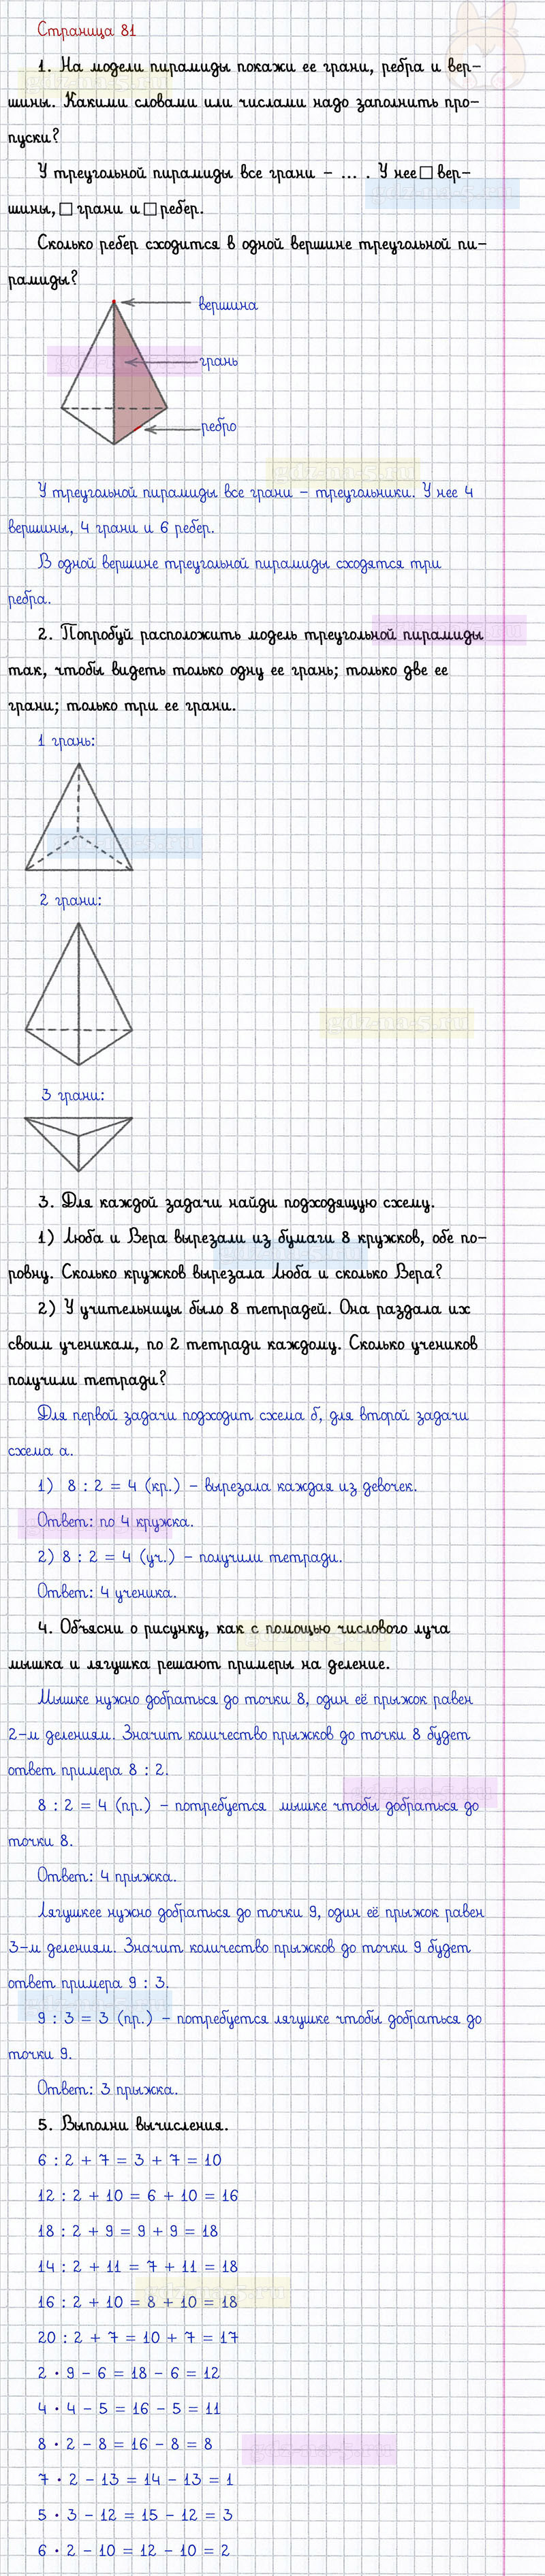 Страница 81
1. На модели пирамиды покажи ее грани, ребра и вер-
шины. Какими словами или числами надо заполнить про-
пуски?
У треугольной пирамиды все грани – ... . У нее □ вер-
шины, □ грани и □ ребер.
Сколько ребер сходится в одной вершине треугольной пи-
рамиды?
вершина
грань
ребро
У треугольной пирамиды все грани – треугольники. У нее 4
вершины, 4 грани и 6 ребер.
В одной вершине треугольной пирамиды сходятся три
ребра.
2. Попробуй расположить модель треугольной пирамиды
так, чтобы видеть только одну ее грань; только две ее
грани; только три ее грани.
1 грань:
2 грани:
3 грани:
3. Для каждой задачи найди подходящую схему.
1) Люба и Вера вырезали из бумаги 8 кружков, обе по-
ровну. Сколько кружков вырезала Люба и сколько Вера?
2) У учительницы было 8 тетрадей. Она раздала их
своим ученикам, по 2 тетради каждому. Сколько учеников
получили тетради?
Для первой задачи подходит схема б, для второй задачи
схема а.
1) 8 : 2 = 4 (кр.) – вырезала каждая из девочек.
Ответ: по 4 кружка.
2) 8 : 2 = 4 (уч.) – получили тетради.
Ответ: 4 ученика.
4. Объясни о рисунку, как с помощью числового луча
мышка и лягушка решают примеры на деление.
Мышке нужно добраться до точки 8, один её прыжок равен
2-м делениям. Значит количество прыжков до точки 8 будет
ответ примера 8 : 2.
8 : 2 = 4 (пр.) – потребуется мышке чтобы добраться до
точки 8.
Ответ: 4 прыжка.
Лягушкее нужно добраться до точки 9, один её прыжок равен
3-м делениям. Значит количество прыжков до точки 9 будет
ответ примера 9 : 3.
9 : 3 = 3 (пр.) – потребуется лягушке чтобы добраться до
точки 9.
Ответ: 3 прыжка.
5. Выполни вычисления.
6 : 2 + 7 = 3 + 7 = 10
12 : 2 + 10 = 6 + 10 = 16
18 : 2 + 9 = 9 + 9 = 18
14 : 2 + 11 = 7 + 11 = 18
16 : 2 + 10 = 8 + 10 = 18
20 : 2 + 7 = 10 + 7 = 17
2 · 9 – 6 = 18 – 6 = 12
4 · 4 – 5 = 16 – 5 = 11
8 · 2 – 8 = 16 – 8 = 8
7 · 2 – 13 = 14 – 13 = 1
5 · 3 – 12 = 15 – 12 = 3
6 · 2 – 10 = 12 – 10 = 2